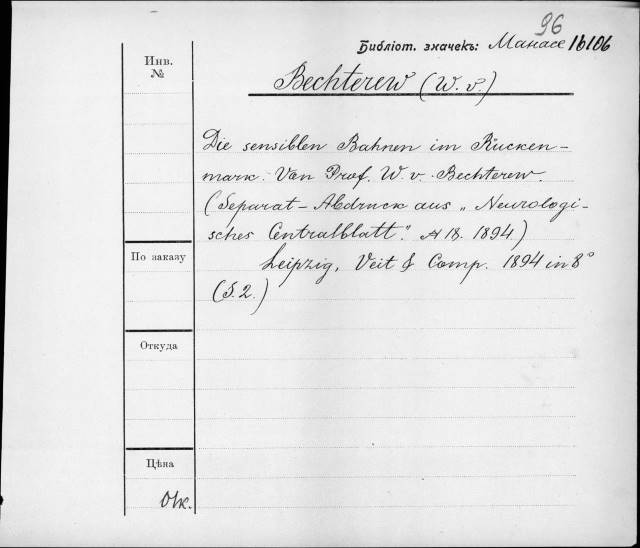 96
Библіот. значекъ: Манасе 16106
Инв.
№
Bechterew (W. v.)
Die sensiblen Bahnen im Rücken-
mark. Von Prof. W. v. Bechterew.
(Separat-Abdruck aus „Neurologi-
sches Centralblatt". 1894.)
По заказу
Leipzig, Veit & Comp. 1894 in 8°
(S. 2.)
Откуда
Цѣна